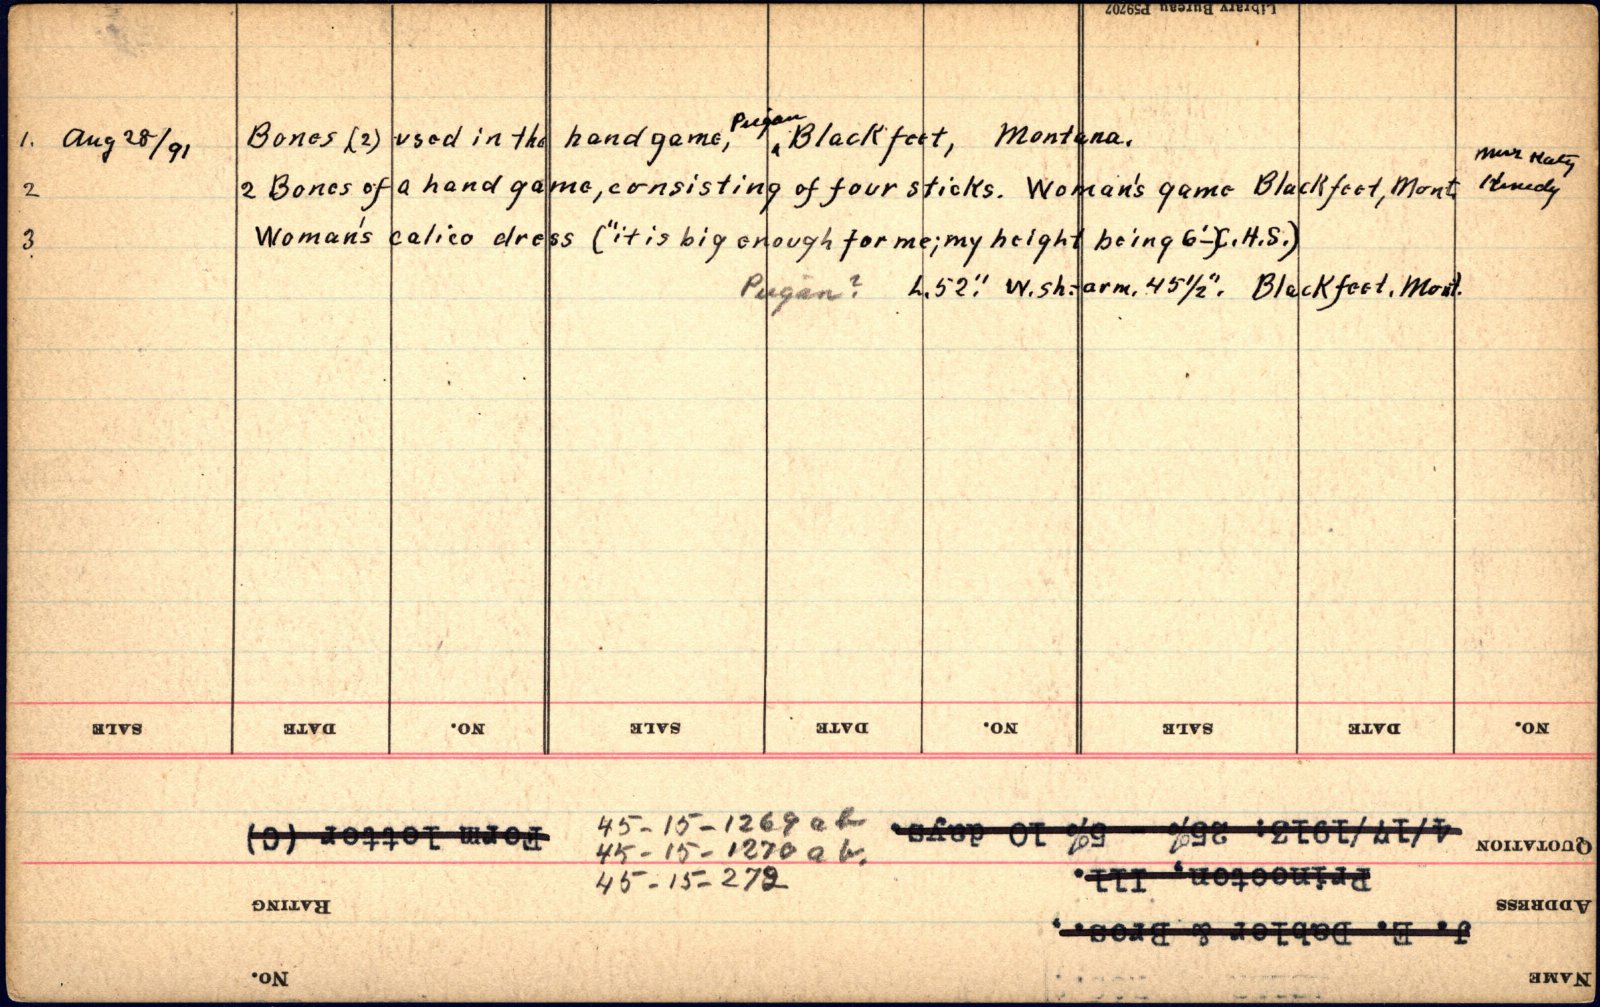 Library Bureau P59707
1. Aug 28/91 Bones (2) used in the hand game, Piegan Blackfeet, Montana.
2 2 Bones of a hand game, consisting of four sticks. Woman's game Blackfeet, Mont. Mrs Katy Kenedy
3 Woman's calico dress ("it is big enough for me; my height being 6'-C.H.S.)
Piegan? L.52". W.sh-arm. 45½". Blackfeet. Mont.
SALE DATE NO. SALE DATE NO. SALE DATE NO.
45-15-1269 a b
45-15-1270 a b.
45-15-272
Form letter (C)
4/17/1913: 25% - 5% 10 days.
QUOTATION
Princeton, Ill.
RATING
ADDRESS
J. E. Dabler & Bros.,
No.
NAME